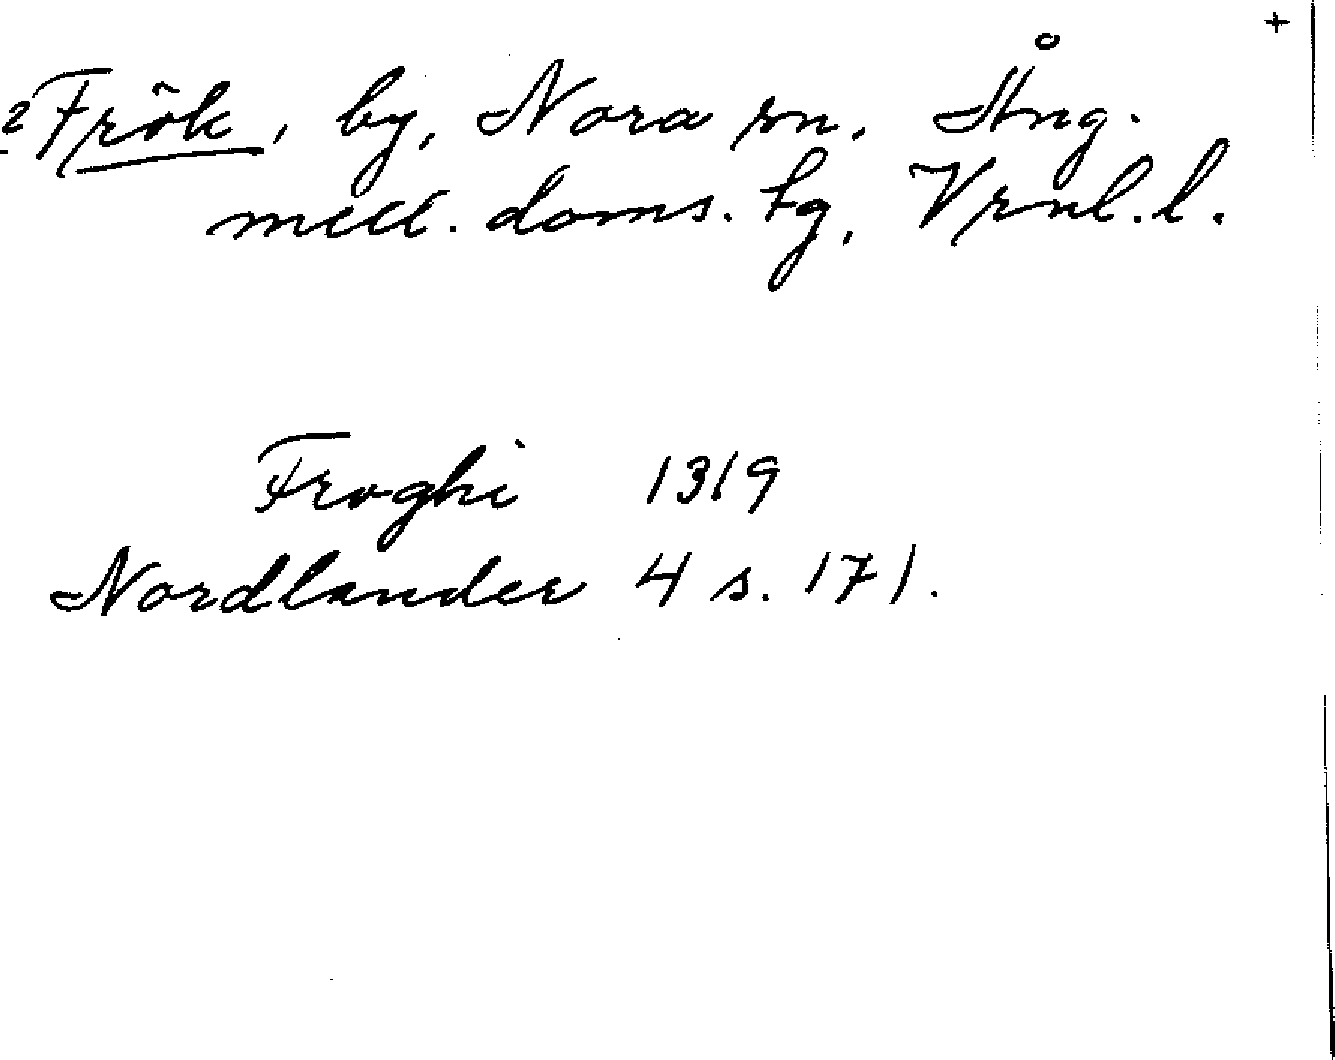 +
2 Frök, by, Nora sn. Ång.
mell. doms. tg, Vrnl. l.
Froghi 1319
Nordlander 4 s. 171.